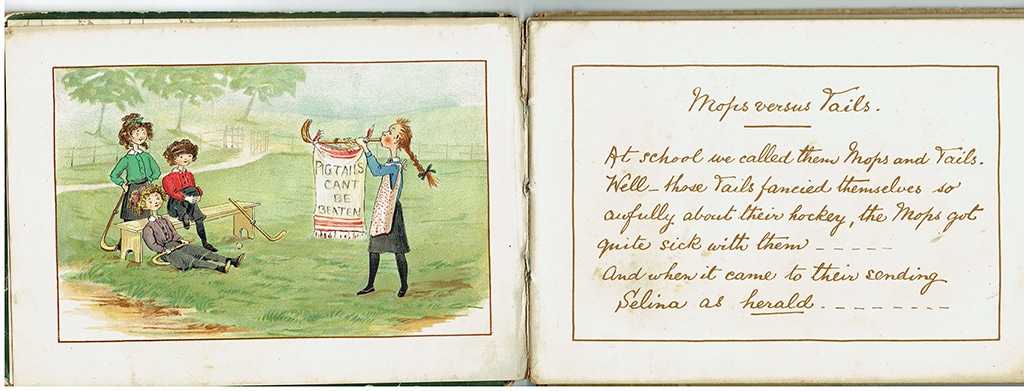 PIGTAILS
CANT
BE
BEATEN
Mops versus Tails.
At school we called them Mops and Tails.
Well – those Tails fancied themselves so
awfully about their hockey, the Mops got
quite sick with them – – – – –
And when it came to their sending
Selina as herald – – – – – – – –